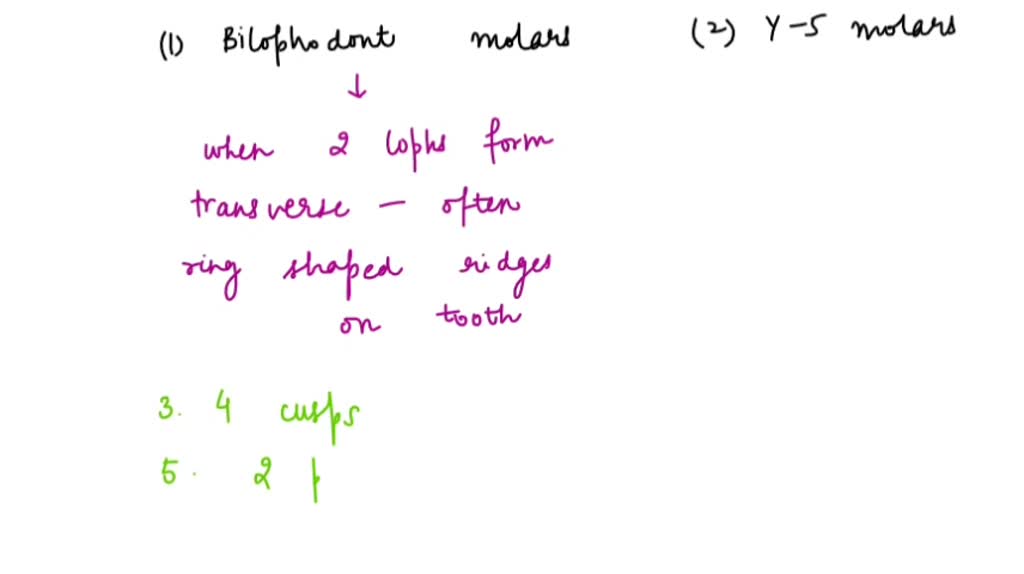 (1) Bilophodont molars (2) Y-5 molars
↓
when 2 lophs form
transverse – often
ring shaped ridges
on tooth
3. 4 cusps
5. 2 p